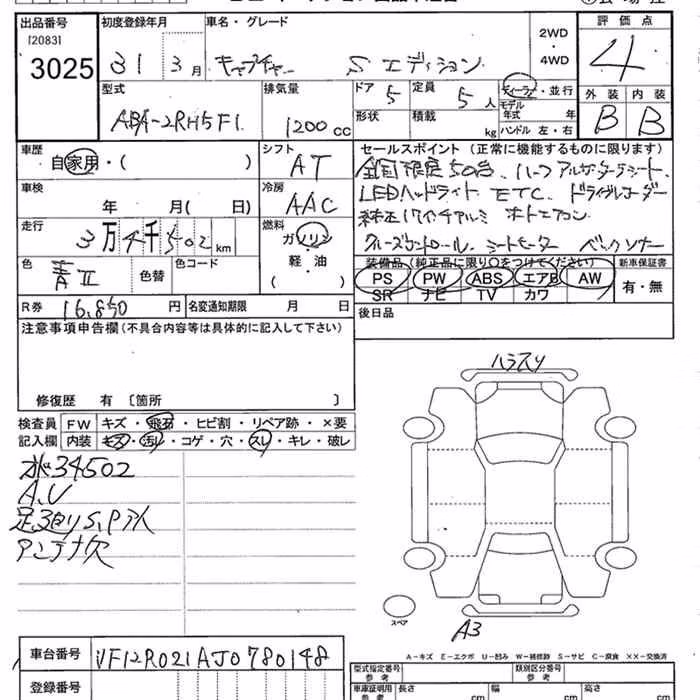 出品番号 初度登録年月 車名・グレード 2WD・4WD 評価点
[2083]
3025 31 3月 キャプチャー Sエディション 4
型式 排気量 ドア 定員 ディーラー・並行 外装 内装
ABA-2RH5F1 1200cc 5 5人 モデル年式 年 B B
形状 積載 kg ハンドル 左・右
車歴 シフト セールスポイント (正常に機能するものに限ります)
自家用・( ) AT 全国限定50台、ハーフアルカンターラシート、
車検 冷房 LEDヘッドライト ETC、ドライブレコーダー
年 月( 日) AAC 純正17インチアルミ オートエアコン
走行 燃料 クルーズコントロール、シートヒーター バックソナー
3万4千502km ガソリン
色 色替 色コード 軽・油
青II ( )
装備品 (純正品に限り〇をつけてください) 新車保証書
PS PW ABS エアB AW 有・無
SR ナビ TV カワ
R券 16,850円 名変通知期限 月 日 後日品
注意事項申告欄(不具合内容等は具体的に記入して下さい)
修復歴 有 〔箇所 〕
検査員 FW キズ・飛石・ヒビ割・リペア跡・×要
記入欄 内装 キズ・汚れ・コゲ・穴・スレ・キレ・破レ
34502
A、U
アンテナ欠
スペア
A3
A-キズ E-エクボ U-凹み W-補修跡 S-サビ C-腐食 XX-交換済
車台番号 VF12R021AJ0780148
登録番号
型式指定番号 参考 類別区分番号 参考
車庫証明用 参考 長さ cm 幅 cm 高さ cm